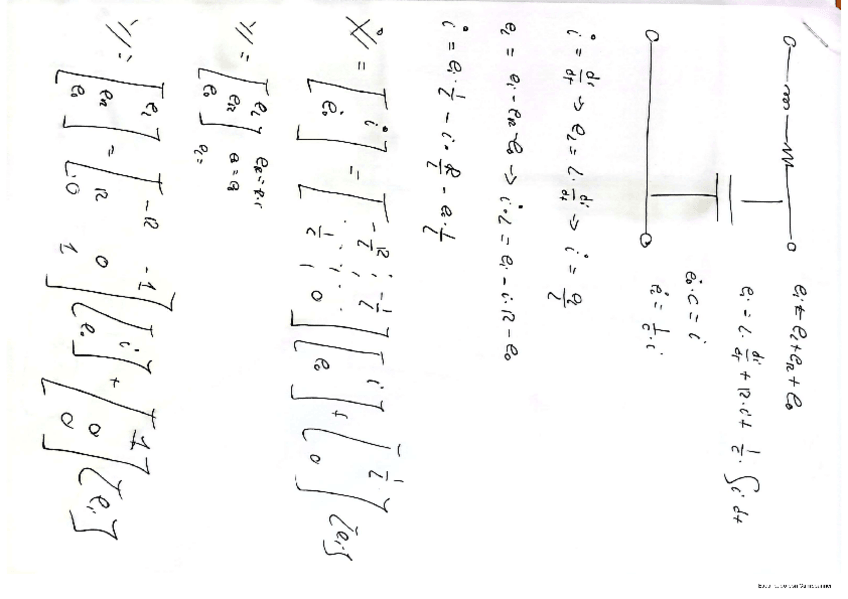 ei = eL + eR + e0
ei = L · di/dt + R·i + 1/C · ∫ i dt
ė0·C = i
ė0 = 1/C · i
i̇ = di/dt → eL = L · di/dt → i̇ = eL/L
eL = ei - eR - e0 → i̇·L = ei - i·R - e0
i̇ = ei · 1/L - i · R/L - e0 · 1/L
Ẋ = [i̇; ė0] = [-R/L, -1/L; 1/C, 0] [i; e0] + [1/L; 0] [ei]
Y = [eL; eR; e0] eR = R·i
eL =
Y = [eL; eR; e0] = [-R, -1; R, 0; 0, 1] [i; e0] + [1; 0; 0] [ei]